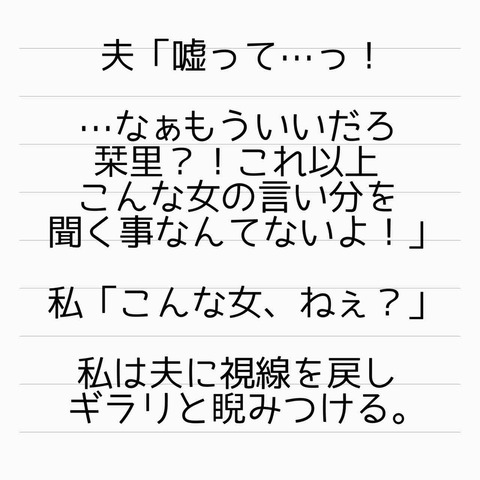 夫「嘘って…っ！
…なぁもういいだろ
栞里？！これ以上
こんな女の言い分を
聞く事なんてないよ！」
私「こんな女、ねぇ？」
私は夫に視線を戻し
ギラリと睨みつける。